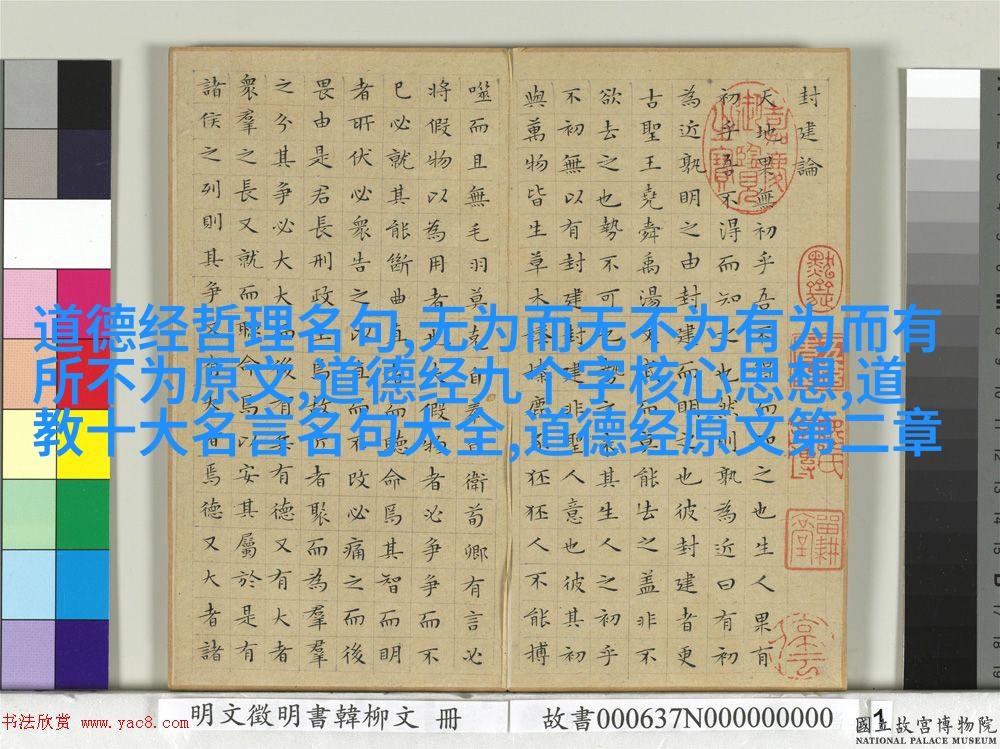 道德经哲理名句,无为而无不为有为而有
所不为原文,道德经九个字核心思想,道
教十大名言名句大全,道德经原文第二章
封建論
天地果無初乎吾不得而知之也生人果有
初乎吾不得而知之也然則孰為近曰有初
為近孰明之由封建而明之也彼封建者更
古聖王堯舜禹湯文武而莫能去之蓋非不
欲去之也勢不可也勢之來其生人之初乎
不初無以有封建封建非聖人意也彼其初
與萬物皆生草木榛榛鹿豕狉狉人不能搏
噬而且無毛羽莫克自奉自衛荀卿有言必
將假物以為用者也夫假物者必爭爭而不
已必就其能斷曲直者而聽命焉其智而明
者所伏必眾告之以直而不改必痛之而後
畏由是君長刑政生焉故近者聚而為羣
之分其爭必大大而後有兵有德又有大者
眾羣之長又就而聽命焉以安其屬於是有
諸侯之列則其爭又有大者焉德又大者諸
明文徵明書韓柳文 冊
故書000637N000000000
1
书法欣赏 www.yac8.com
國立故宮博物院
NATIONAL PALACE MUSEUM